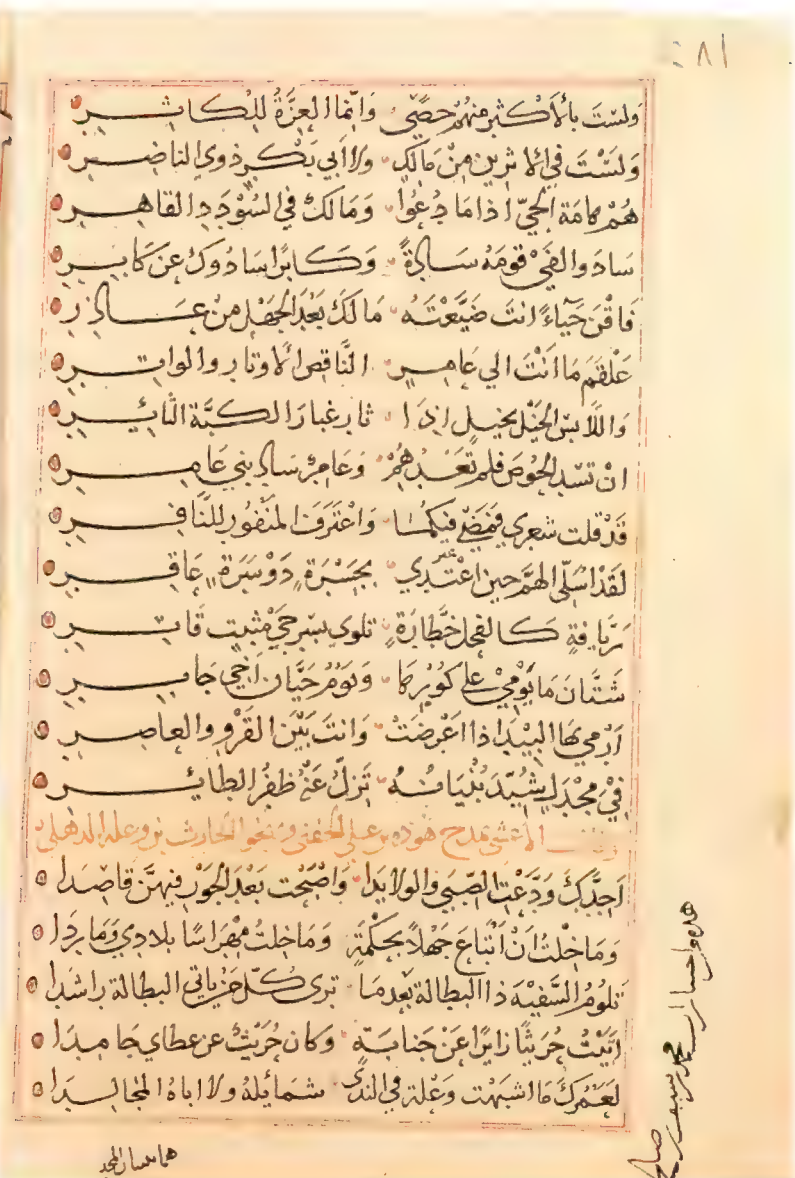 ٤٨١
ولست بالأكثر منهم حصى وانما العزة للكاثر
ولست في الاثرين من مالك ولا ابي بكر ذوي الناضر
هم هامة الحي اذا ما دعوا ومالك في السودد القاهر
ساد والفي قومه سادة وكابرا سادوك عن كابر
فاقن حياء انت ضيعته مالك بعد الجهل من عاذر
علقم ما انت الى عامر الناقص الاوتار والواتر
واللابس الخيل بخيل اذا ثار غبار الكبة الثائر
ان تسد الحوص فلم تعدهم وعامر ساد بني عامر
قد قلت شعري فمضى فيكما واعترف المنفور للنافر
لقد اسلي الهم حين اعتدي بجسرة دوسرة عاقر
زيافة كالفحل خطارة تلوي بشرخي ميت قاتر
شتان ما يومي على كورها ويوم حيان اخي جابر
ارمي بها البيدا اذا اعرضت وانت بين القرو والعاصر
في مجدل شيد بنيانه تزل عنه ظفر الطائر
الاعشى يمدح هوذه بن علي الحنفي ويهجو الحارث بن وعله
اجدك ودعت الصبى والولايدا واصبحت بعد الجور فيهن قاصدا
وما خلت ان اتباع جهلا بحكمة وما خلت مهراسا بلادي وماردا
تلوم السفيه ذا البطالة بعد ما ترى كل من ياتي البطالة راشدا
اتيت حريثا زايرا عن جنابة وكان حريث عن عطاي جامدا
لعمرك ما اشبهت وعلة في الندى شمائله ولا اباه المجالدا